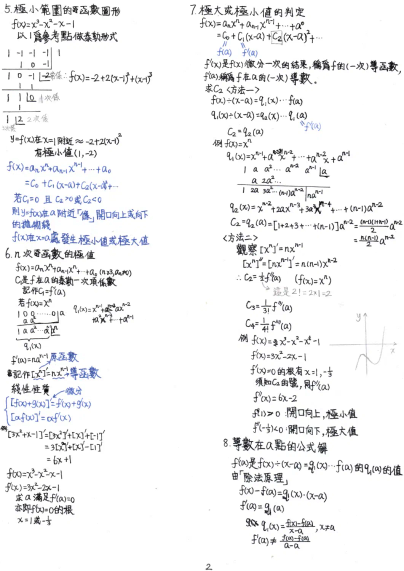 5. 極小範圍的多函數圖形
f(x)=x³-x²-x-1
以1為參考點做泰勒形式
1 -1 -1 -1 | 1
1 0 -1
1 0 -1 -2
f(x)=-2+2(x-1)²+(x-1)³
1 1
1 1 0
1
1 2 2次值
y=f(x)在x=1附近≈-2+2(x-1)²
有極小值(1,-2)
f(x)=aₙxⁿ+aₙ₋₁xⁿ⁻¹+…+a₀
=C₀+C₁(x-a)+C₂(x-a)²+…
若C₁=0 且 C₂>0或C₂<0
則y=f(x)在a附近「像」開口向上或向下
的拋物線
f(x)在x=a處發生極小值或極大值
6. n次多函數的極值
f(x)=aₙxⁿ+aₙ₋₁xⁿ⁻¹+…+a₀
C₁是f在a的泰勒一次項係數
記作C₁=f'(a)
若f(x)=xⁿ
1 0 0 … 0 | a
q₁(x)
f'(a)=naⁿ⁻¹ 原函數
記作[xⁿ]'=nxⁿ⁻¹ 導函數
線性性質 微分
[f(x)+g(x)]'=f'(x)+g'(x)
[αf(x)]'=αf'(x)
例
[3x²+x-1]'=[3x²]'+[x]'+[-1]'
=3[x²]'+[x]'-[1]'
=6x+1
f(x)=x³-x²-x-1
f'(x)=3x²-2x-1
求a滿足f'(a)=0
亦即f'(x)=0的根
x=1或-⅓
7. 極大或極小值的判定
f(x)=aₙxⁿ+aₙ₋₁xⁿ⁻¹+…+a₀
=C₀+C₁(x-a)+C₂(x-a)²+…
f(a) f'(a)
f'(x)是f(x)微分一次的結果，稱為f的(一次)導函數，
f'(a)稱為f在a的(一次)導數。
求C₂<方法一>
f(x)÷(x-a)=q₁(x)…f(a)
q₁(x)÷(x-a)=q₂(x)…q₁(a)
f'(a)
C₂=q₂(a)
例 f(x)=xⁿ
q₁(x)=xⁿ⁻¹+axⁿ⁻²+…+aⁿ⁻²x+aⁿ⁻¹
1 a a² … aⁿ⁻² aⁿ⁻¹ | a
a 2a² …
1 2a 3a² … (n-1)aⁿ⁻² | naⁿ⁻¹
q₂(x)=xⁿ⁻²+2axⁿ⁻³+3a²xⁿ⁻⁴+…+(n-1)aⁿ⁻²
C₂=q₂(a)=[1+2+3+…+(n-1)]aⁿ⁻²=n(n-1)/2 aⁿ⁻²
<方法二>
觀察[xⁿ]'=nxⁿ⁻¹
[xⁿ]''=[nxⁿ⁻¹]'=n(n-1)xⁿ⁻²
∴C₂=½f''(a)
這是2!=2×1=2
C₃=1/3! f'''(a)
C₄=1/4! f⁗(a)
例 f(x)=x³-x²-x-1
f'(x)=3x²-2x-1
f'(x)=0的根有x=1,-⅓
須知C₂的號，用f''(a)
f''(x)=6x-2
f''(1)>0 開口向上，極小值
f''(-⅓)<0 開口向下，極大值
y
x
8. 導數在a點的公式解
f'(a)是f(x)÷(x-a)=q₁(x)…f(a)的q₁(a)的值
由「除法原理」
f(x)-f(a)=q₁(x)·(x-a)
f'(a)=q₁(a)
q₁(x)=f(x)-f(a)/x-a, x≠a
f'(a)≠f(a)-f(a)/a-a
2